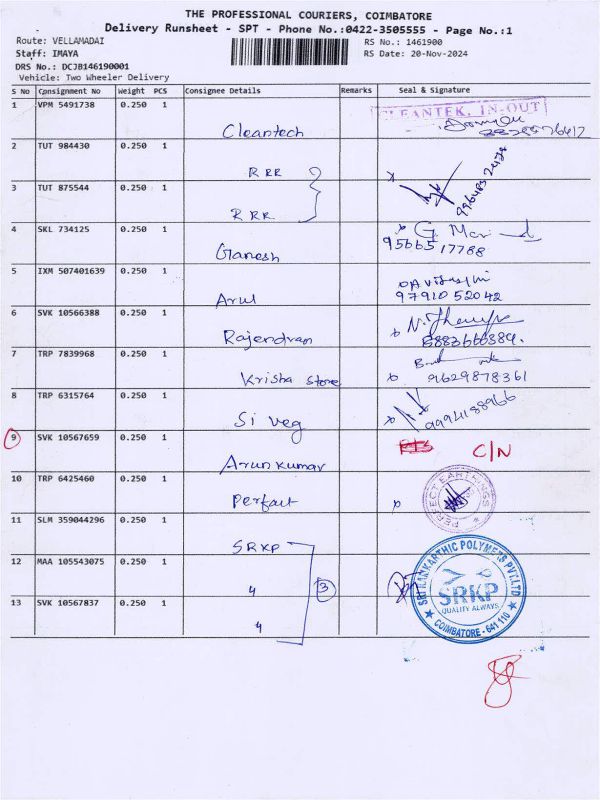 THE PROFESSIONAL COURIERS, COIMBATORE
Delivery Runsheet - SPT - Phone No.:0422-3505555 - Page No.:1
Route: VELLAMADAI
RS No.: 1461900
Staff: IMAYA
RS Date: 20-Nov-2024
DRS No.: DCJB146190001
Vehicle: Two Wheeler Delivery
S No Consignment No Weight PCS Consignee Details Remarks Seal & Signature
1 VPM 5491738 0.250 1 Cleantech CLEANTEK, IN-OUT
2 TUT 984430 0.250 1 RRR
3 TUT 875544 0.250 1 RRR
4 SKL 734125 0.250 1 Ganesh G.
95665 17788
5 IXM 507401639 0.250 1 Arul
97910 52042
6 SVK 10566388 0.250 1 Rajendran
7 TRP 7839968 0.250 1 Krisha Store
9629878361
8 TRP 6315764 0.250 1 Si veg
9994188966
9 SVK 10567659 0.250 1 Arunkumar C/N
10 TRP 6425460 0.250 1 Perfact PERFECT EARTHINGS
11 SLM 359044296 0.250 1 SRKP
12 MAA 105543075 0.250 1 " 3
13 SVK 10567837 0.250 1 "
SRI RANKARTHIC POLYMERS PVT.LTD
SRKP
QUALITY ALWAYS
COIMBATORE - 641 110